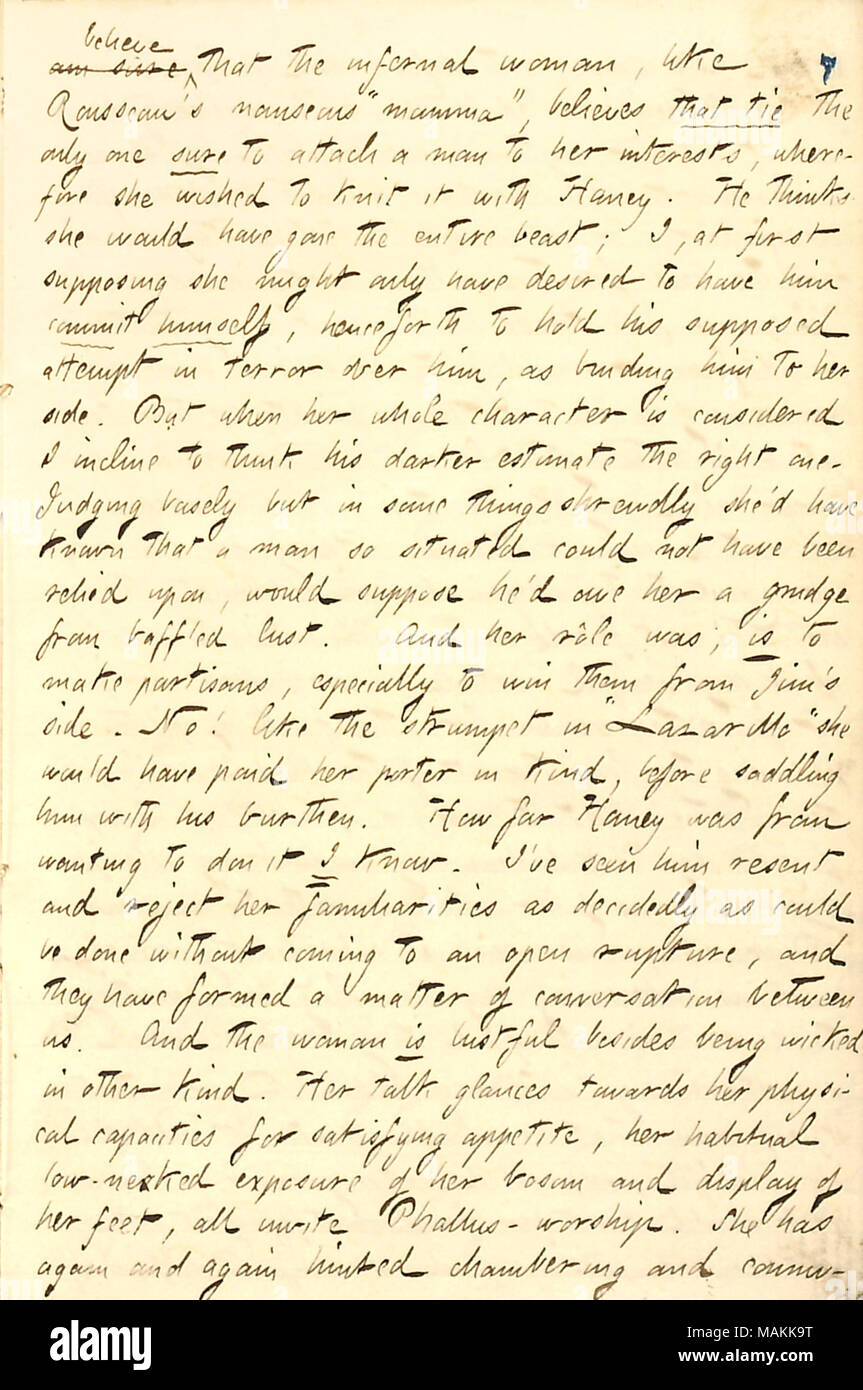 believe
am sure, that the infernal woman, like 7
Rousseau's nauseous "mamma", believes that tie the
only one sure to attach a man to her interests, where-
fore she wished to knit it with Haney. He thinks
she would have gone the entire beast; I, at first
supposing she might only have desired to have him
commit himself, henceforth to hold his supposed
attempt in terror over him, as binding him to her
side. But when her whole character is considered
I incline to think his darker estimate the right one.
Judging basely but in some things shrewdly she'd have
known that a man so situated could not have been
relied upon, would suppose he'd owe her a grudge
from baffled lust. And her rôle was, is to
make partisans, especially to win them from Jim's
side. No! like the strumpet in "Lazarillo" she
would have paid her porter in kind, before saddling
him with his burthen. How far Haney was from
wanting to don it I know. I've seen him resent
and reject her familiarities as decidedly as could
be done without coming to an open rupture, and
they have formed a matter of conversation between
us. And the woman is lustful besides being wicked
in other kind. Her talk glances towards her physi-
cal capacities for satisfying appetite, her habitual
low-necked exposure of her bosom and display of
her feet, all invite Phallus-worship. She has
again and again hinted chambering and commu-
alamy
Image ID: MAKK9T
www.alamy.com